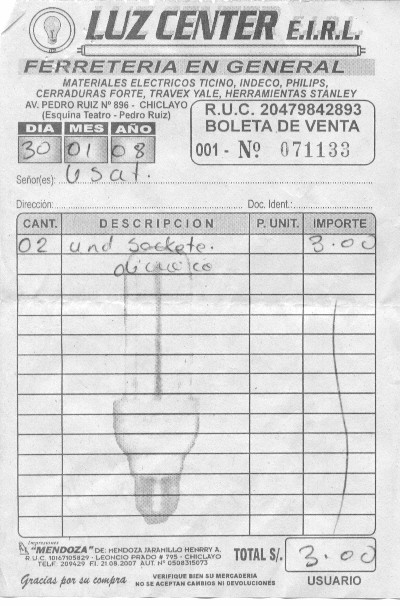 LUZ CENTER E.I.R.L.
FERRETERIA EN GENERAL
MATERIALES ELECTRICOS TICINO, INDECO, PHILIPS,
CERRADURAS FORTE, TRAVEX YALE, HERRAMIENTAS STANLEY
AV. PEDRO RUIZ Nº 896 - CHICLAYO
(Esquina Teatro - Pedro Ruiz)
R.U.C. 20479842893
BOLETA DE VENTA
001 - Nº 071133
DIA MES AÑO
30 01 08
Señor(es): Usat.
Dirección: Doc. Ident.:
CANT. DESCRIPCION P. UNIT. IMPORTE
02 und Sockete. 3.00
Impresiones
"MENDOZA" DE: MENDOZA JARAMILLO HENRRY A.
R.U.C. 10167105829 - LEONCIO PRADO # 795 - CHICLAYO
TELF. 209429 F.I. 21.08.2007 AUT. Nº 0508315073
TOTAL S/. 3.00
Gracias por su compra
VERIFIQUE BIEN SU MERCADERIA
NO SE ACEPTAN CAMBIOS NI DEVOLUCIONES
USUARIO